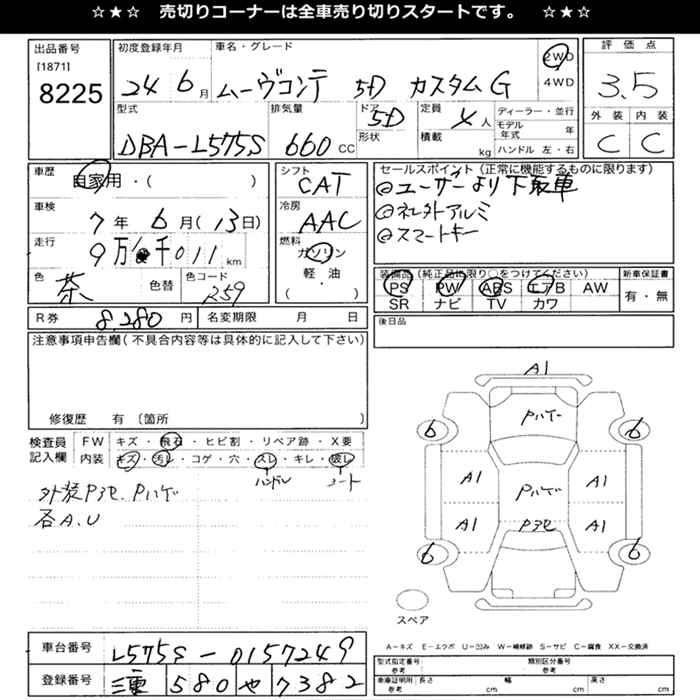 ☆★☆ 売切りコーナーは全車売り切りスタートです。 ☆★☆
出品番号 初度登録年月 車名・グレード 評価点
[1871] 2WD
8225 24 6月 ムーヴコンテ 5D カスタム G 4WD 3.5
型式 排気量 ドア 定員 ディーラー・並行 外装 内装
DBA-L575S 660 CC 5D 4人 モデル年式 年 C C
形状 積載 kg ハンドル 左・右
車歴 シフト セールスポイント(正常に機能するものに限ります)
自家用・( ) CAT ユーザーより下取車
車検 冷房 社外アルミ
7年 6月(13日) AAC スマートキー
走行 燃料
9万 千011 km ガソリン
色 色替 色コード 軽油 装備品(純正品に限り○をつけてください) 新車保証書
茶 R59 ・ PS PW ABS エアB AW 有・無
( ) SR ナビ TV カワ
R券 8,280 円 名変期限 月 日 後日品
注意事項申告欄(不具合内容等は具体的に記入して下さい)
修復歴 有〔箇所 〕
検査員 FW キズ・飛石・ヒビ割・リペア跡・X要
記入欄 内装 キズ・汚レ・コゲ・穴・スレ・キレ・破レ
ハンドル シート
外装Pヨレ、Pハゲ
各A.U
A1
Pハゲ
6 6
A1 Pハゲ A1
A1 Pヨレ A1
6 6
スペア
A-キズ E-エクボ U-凹み W-補修跡 S-サビ C-腐食 XX-交換済
車台番号 L575S-0157249
登録番号 三重 580 や 7382
型式指定番号 類別区分番号
参考 参考
車庫証明用 長さ 幅 高さ
参考 cm cm cm